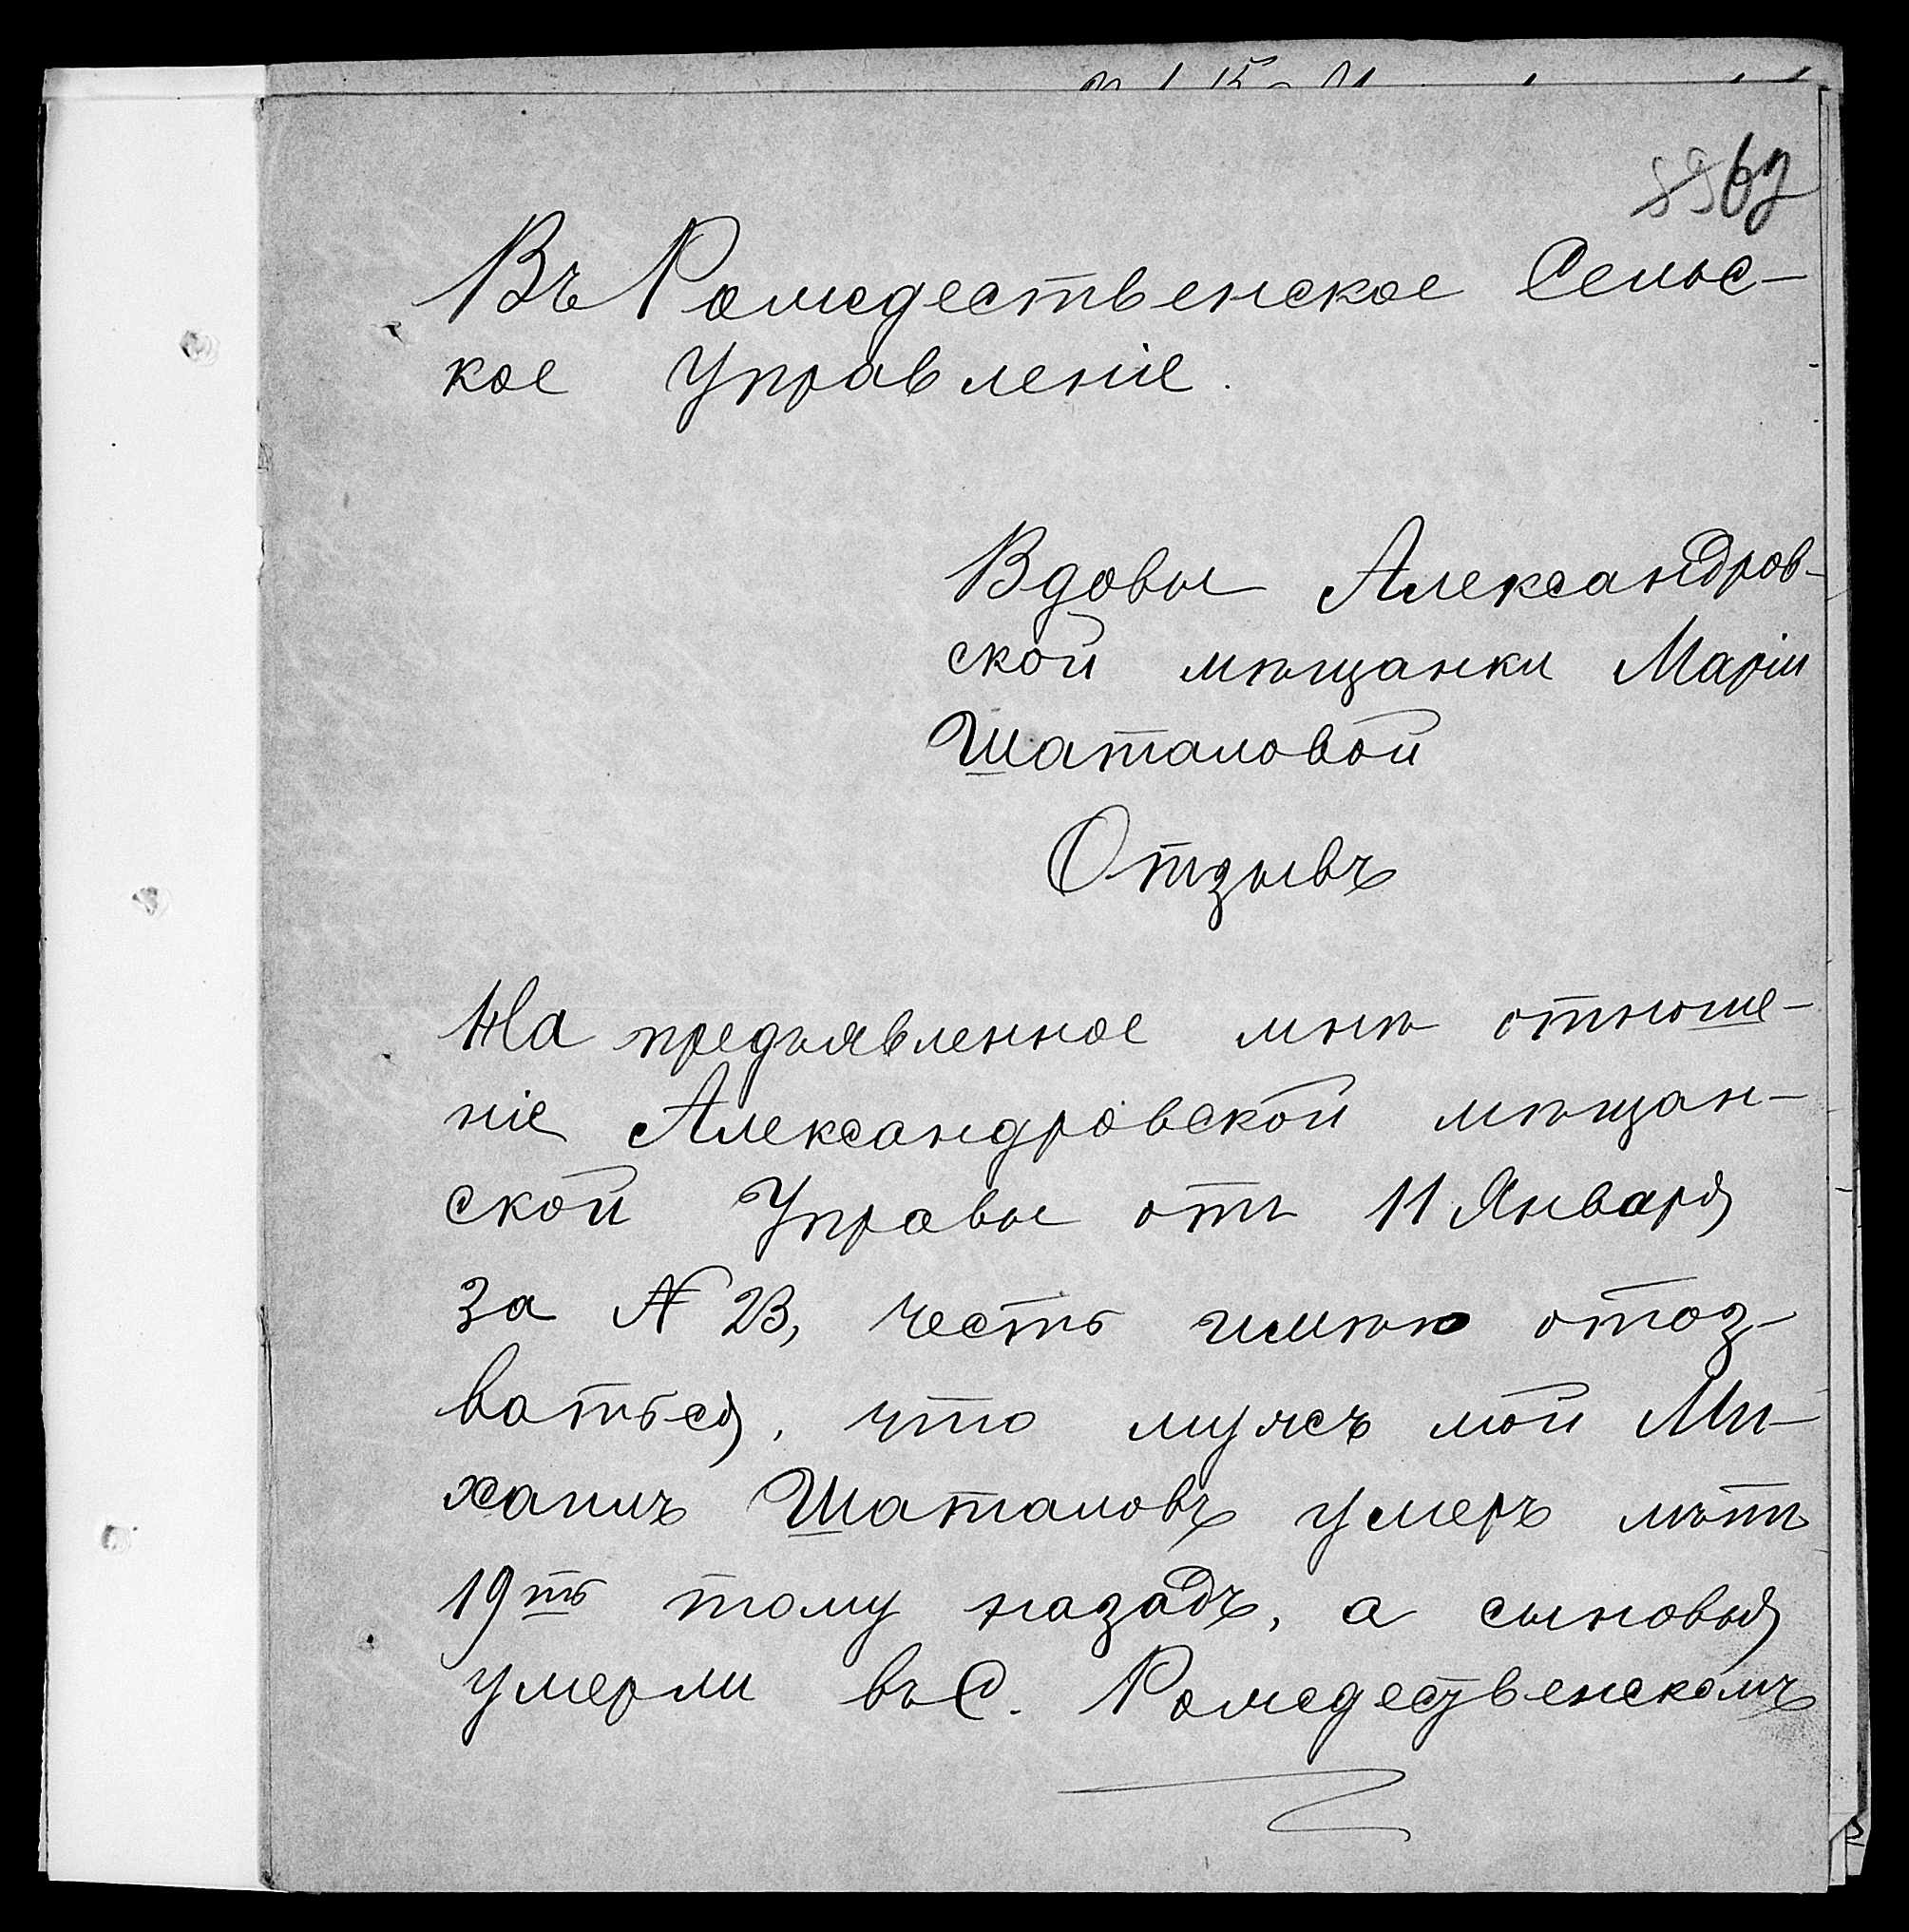 67
Въ Рождественское Сельс-
кое Управленіе.
Вдовы Александров-
ской мѣщанки Маріи
Шаталовой
Отзывъ
На предъявленное мнѣ отноше-
ніе Александровской мѣщан-
ской Управы отъ 11 Января
за № 23, честь имѣю отоз-
ваться, что мужъ мой Ми-
хаилъ Шаталовъ умеръ лѣтъ
19ть тому назадъ, а сыновья
умерли въ С. Рождественскомъ